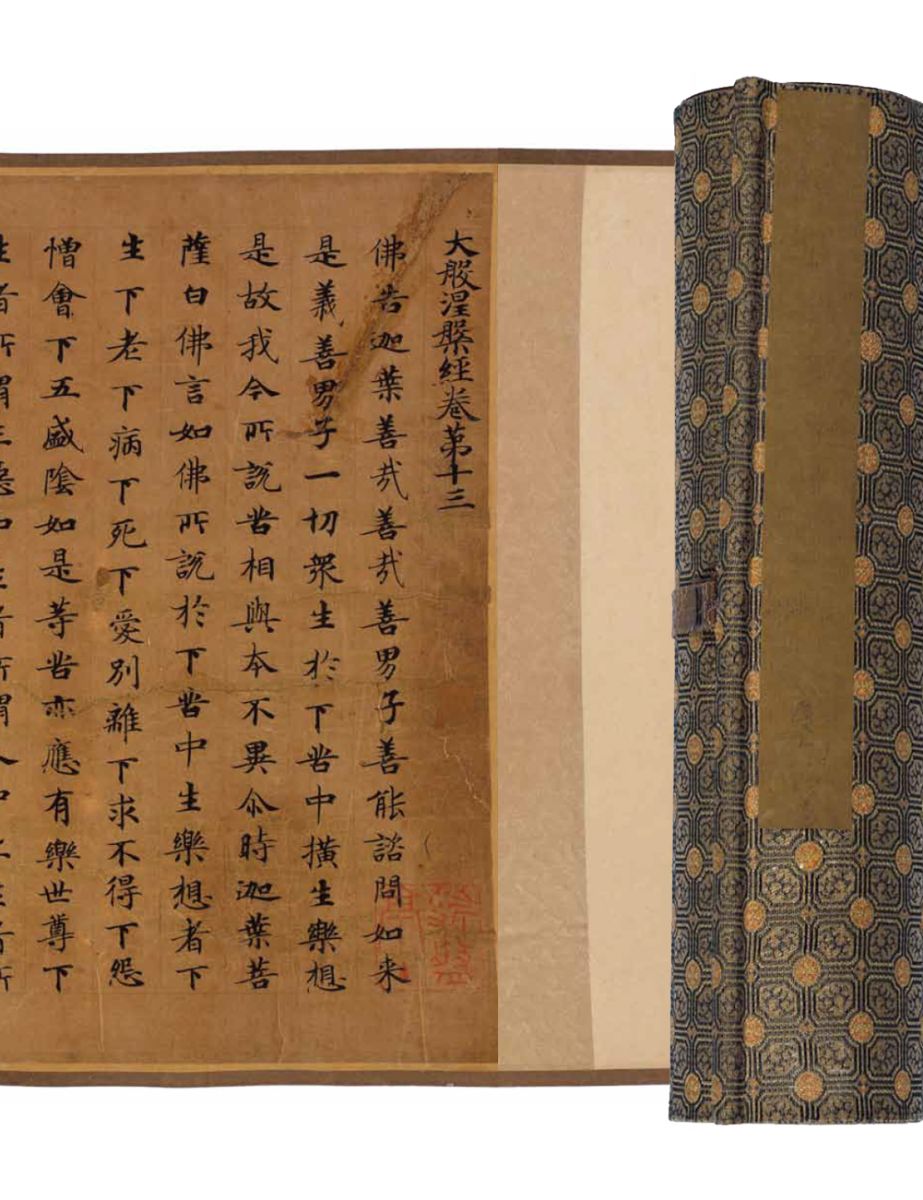 大般涅槃經卷第十三
佛告迦葉善哉善哉善男子善能諮問如来
是義善男子一切衆生於下苦中横生樂想
是故我今所說苦相與本不異尒時迦葉菩
薩白佛言如佛所說於下苦中生樂想者下
生下老下病下死下愛別離下求不得下怨
憎會下五盛陰如是等苦亦應有樂世尊下
生者所謂三惡中生者所謂人中上生者所